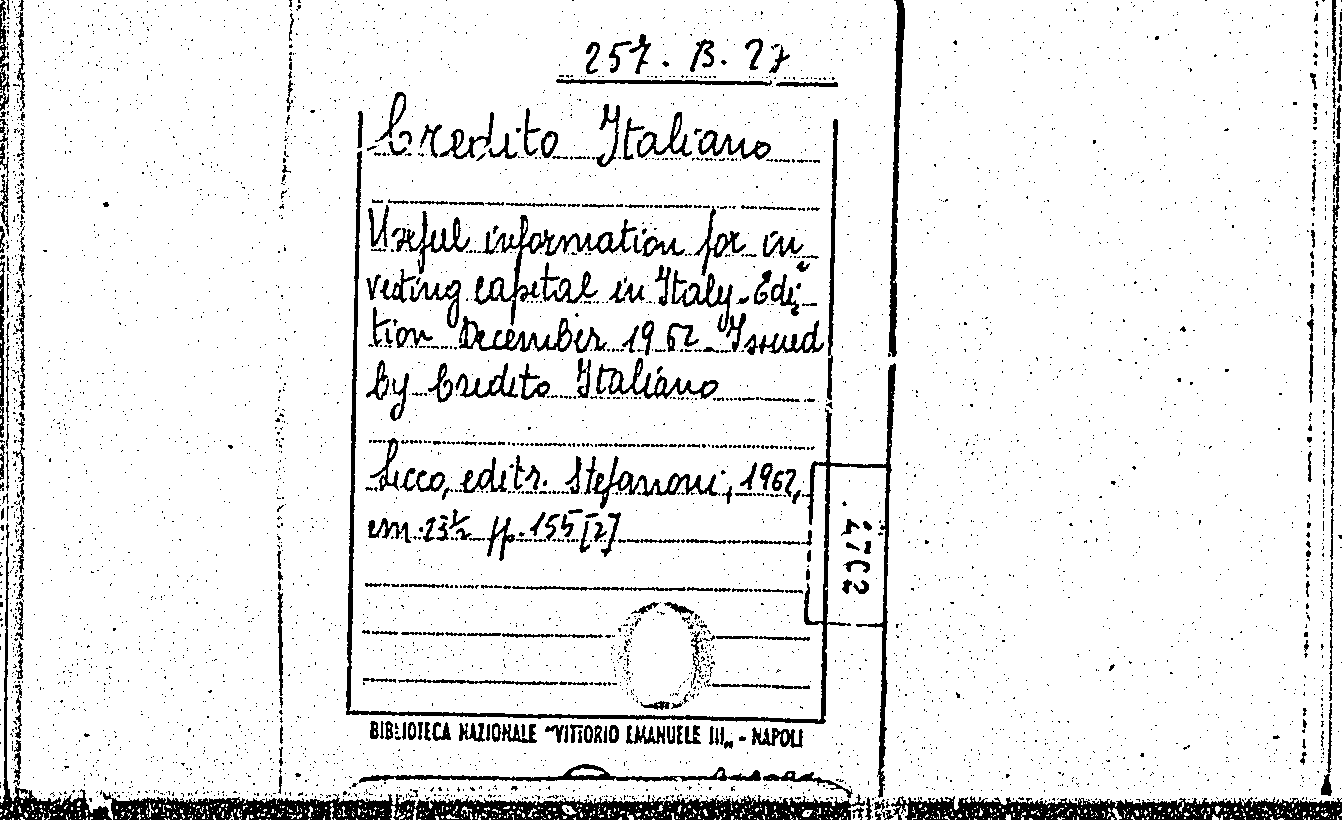 257. B. 27
Credito Italiano
Useful information for in
vesting capital in Italy - Edi-
tion December 1962 - Issued
by Credito Italiano
Lecco, editr. Stefanoni, 1962,
cm. 23½ pp. 155 [2]
4702
BIBLIOTECA NAZIONALE "VITTORIO EMANUELE III„ - NAPOLI